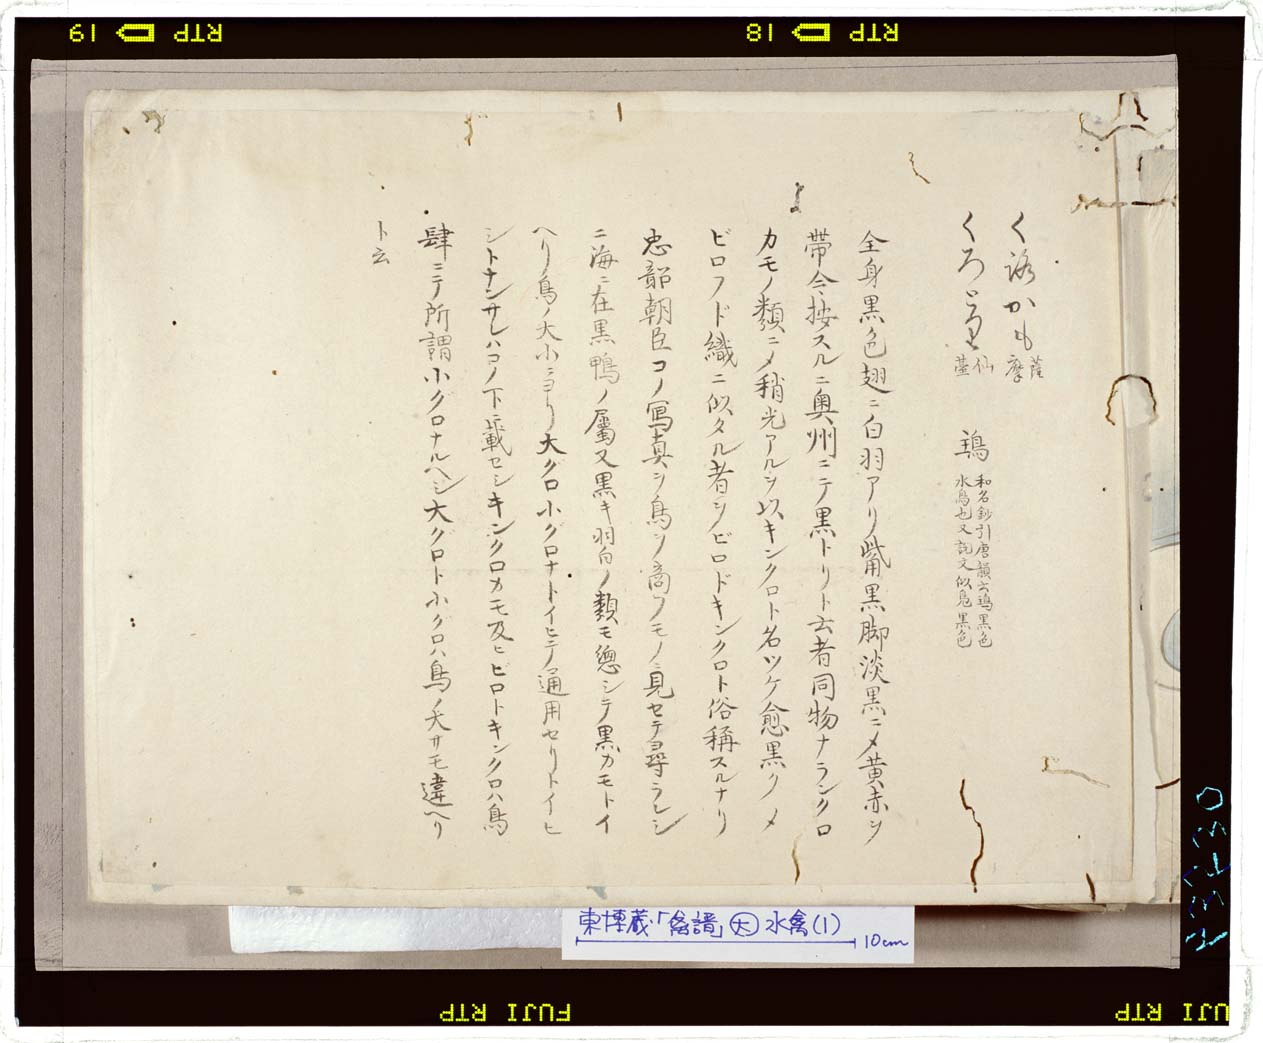 く路かも 薩摩
くろとり 仙臺 鴇 和名鈔引唐韻云鴇黒色
水鳥也又説文似鳬黒色
全身黒色翅ニ白羽アリ觜黒脚淡黒ニメ黄赤ヲ
帯今按スルニ奥州ニテ黒トリト云者同物ナランクロ
カモノ類ニメ稍光アルヲ以キンクロト名ツケ愈黒クメ
ビロフド織ニ似タル者ヲビロドキンクロト俗稱スルナリ
忠韶朝臣コノ冩真ヲ鳥ヲ商フモノニ見セテ尋ラレシ
ニ海ニ在黒鴨ノ屬又黒キ羽白ノ類モ總シテ黒カモトイ
ヘリ鳥ノ大小ニヨリ大グロ小グロナトイヒテ通用セリトイヒ
シトナンサレハコノ下ニ載セシキンクロカモ及ヒビロトキンクロハ鳥
肆ニテ所謂小グロナルヘシ大グロト小グロハ鳥ノ大サモ違ヘリ
ト云
東博蔵「禽譜」大 水禽(1)
10cm
RTP 18
RTP 19
FUJI RTP
FUJI RTP